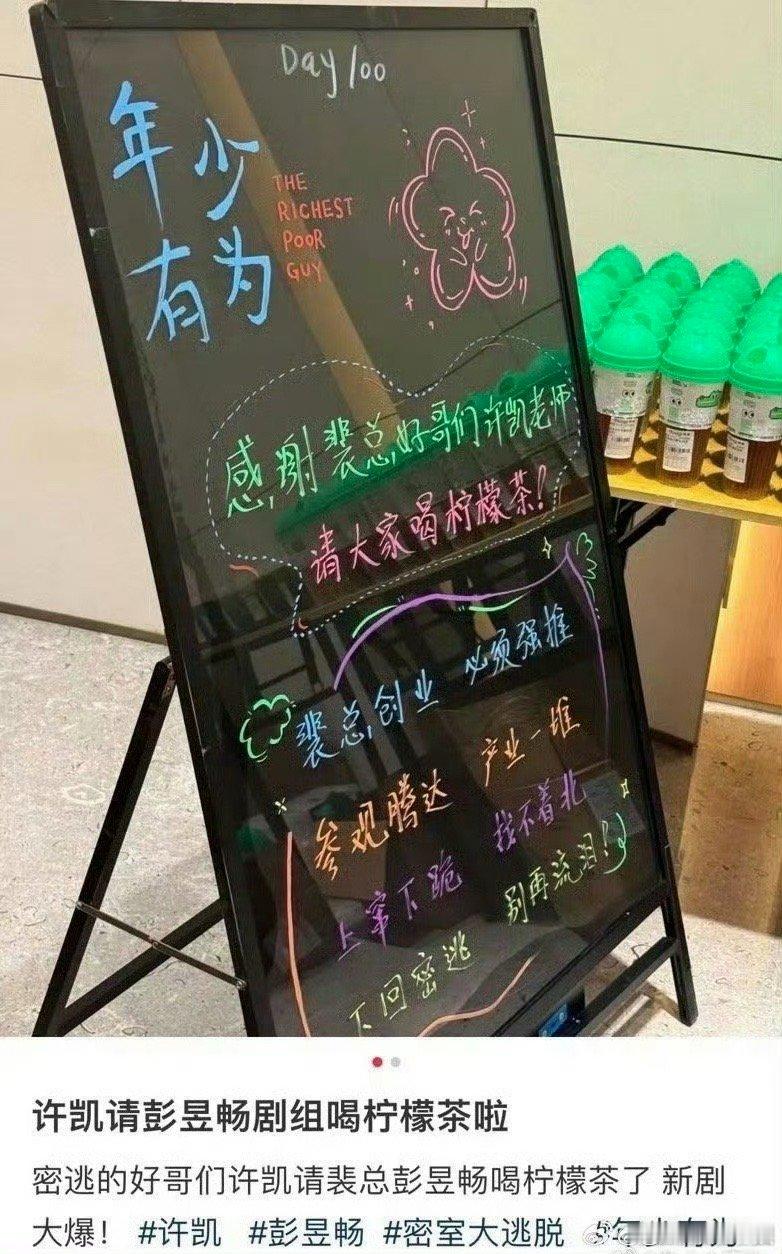 Day 100
年少
有为
THE
RICHEST
POOR
GUY
感谢裴总好哥们许凯老师
请大家喝柠檬茶!
裴总创业 必须强推
参观腾达 产业一堆
上窜下跪 找不着北
下回密逃 别再流泪!
许凯请彭昱畅剧组喝柠檬茶啦
密逃的好哥们许凯请裴总彭昱畅喝柠檬茶了 新剧
大爆! #许凯 #彭昱畅 #密室大逃脱